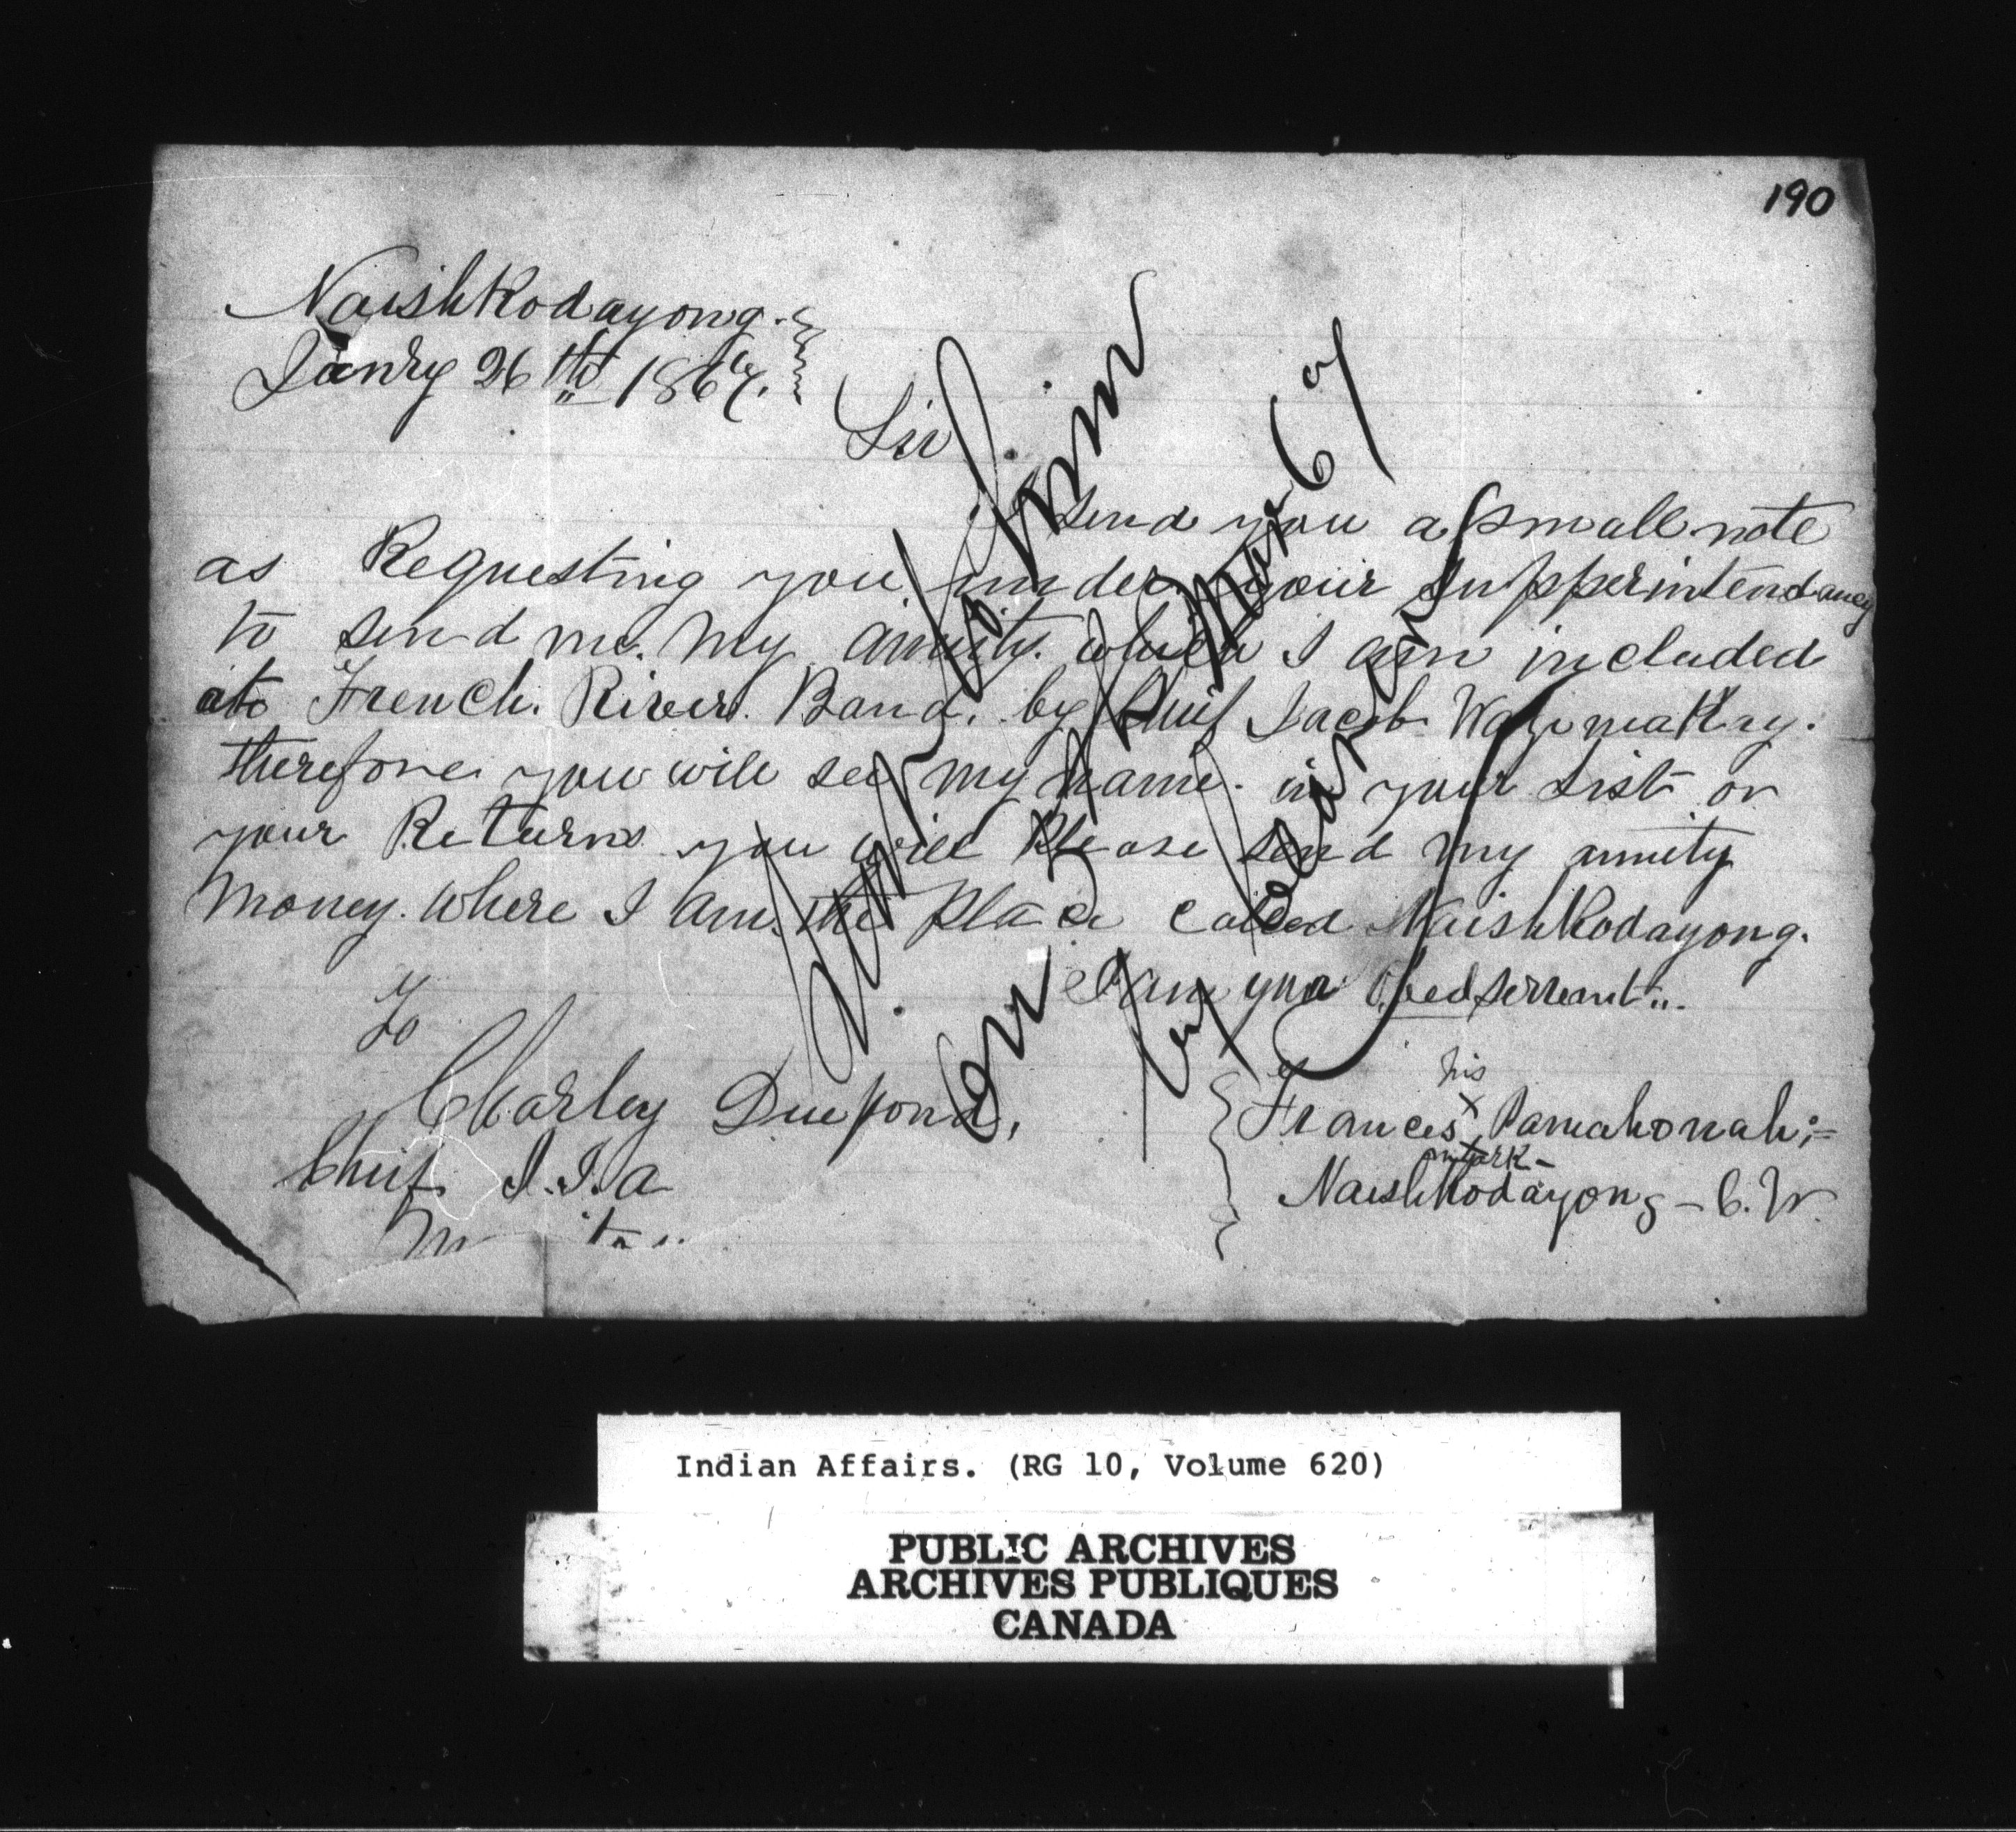 190
Naishkodayong.
Janry 26th 1867.
Sir
I send you a small note
as Requesting you under your Supperintendancy
to send me. My annity. which I am included
at French. River. Band. by Chief Jacob Wagimakey.
therefore you will see my name. in your List or
your Returns you will Please send my annity
Money. where I am. the Place Called Naishkodayong.
I am your Obed servant..
To
Charley Duepond,
Chief. S.I.A
his
Frances x Pamahonah;=
mark-
Naishkodayong - C. W.
Sent to him
on 7th Mar 67
by
Indian Affairs. (RG 10, Volume 620)
PUBLIC ARCHIVES
ARCHIVES PUBLIQUES
CANADA